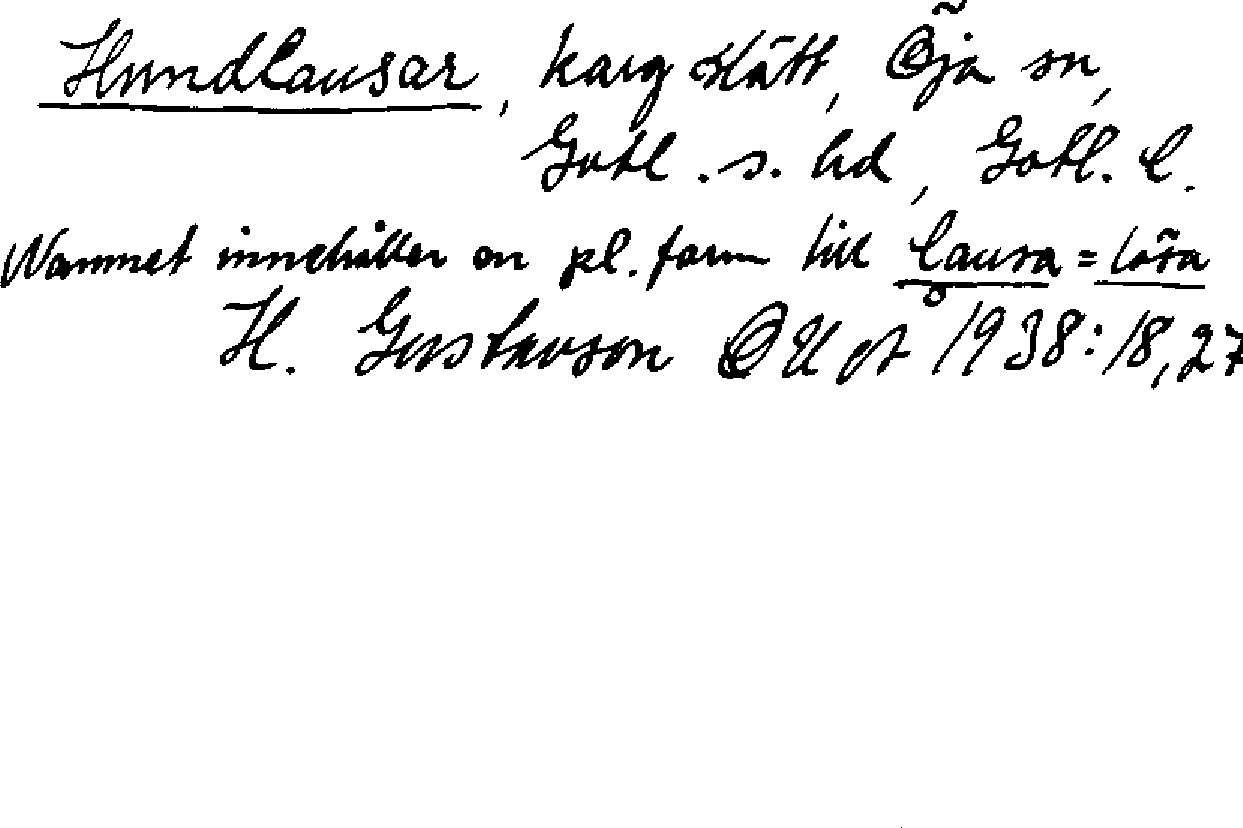 Hundlausar, karg slätt, Öja sn,
Gotl. s. hd, Gotl. l.
Namnet innehåller en pl. form till lausa = lösa
H. Gustavson 1938: 18, 27